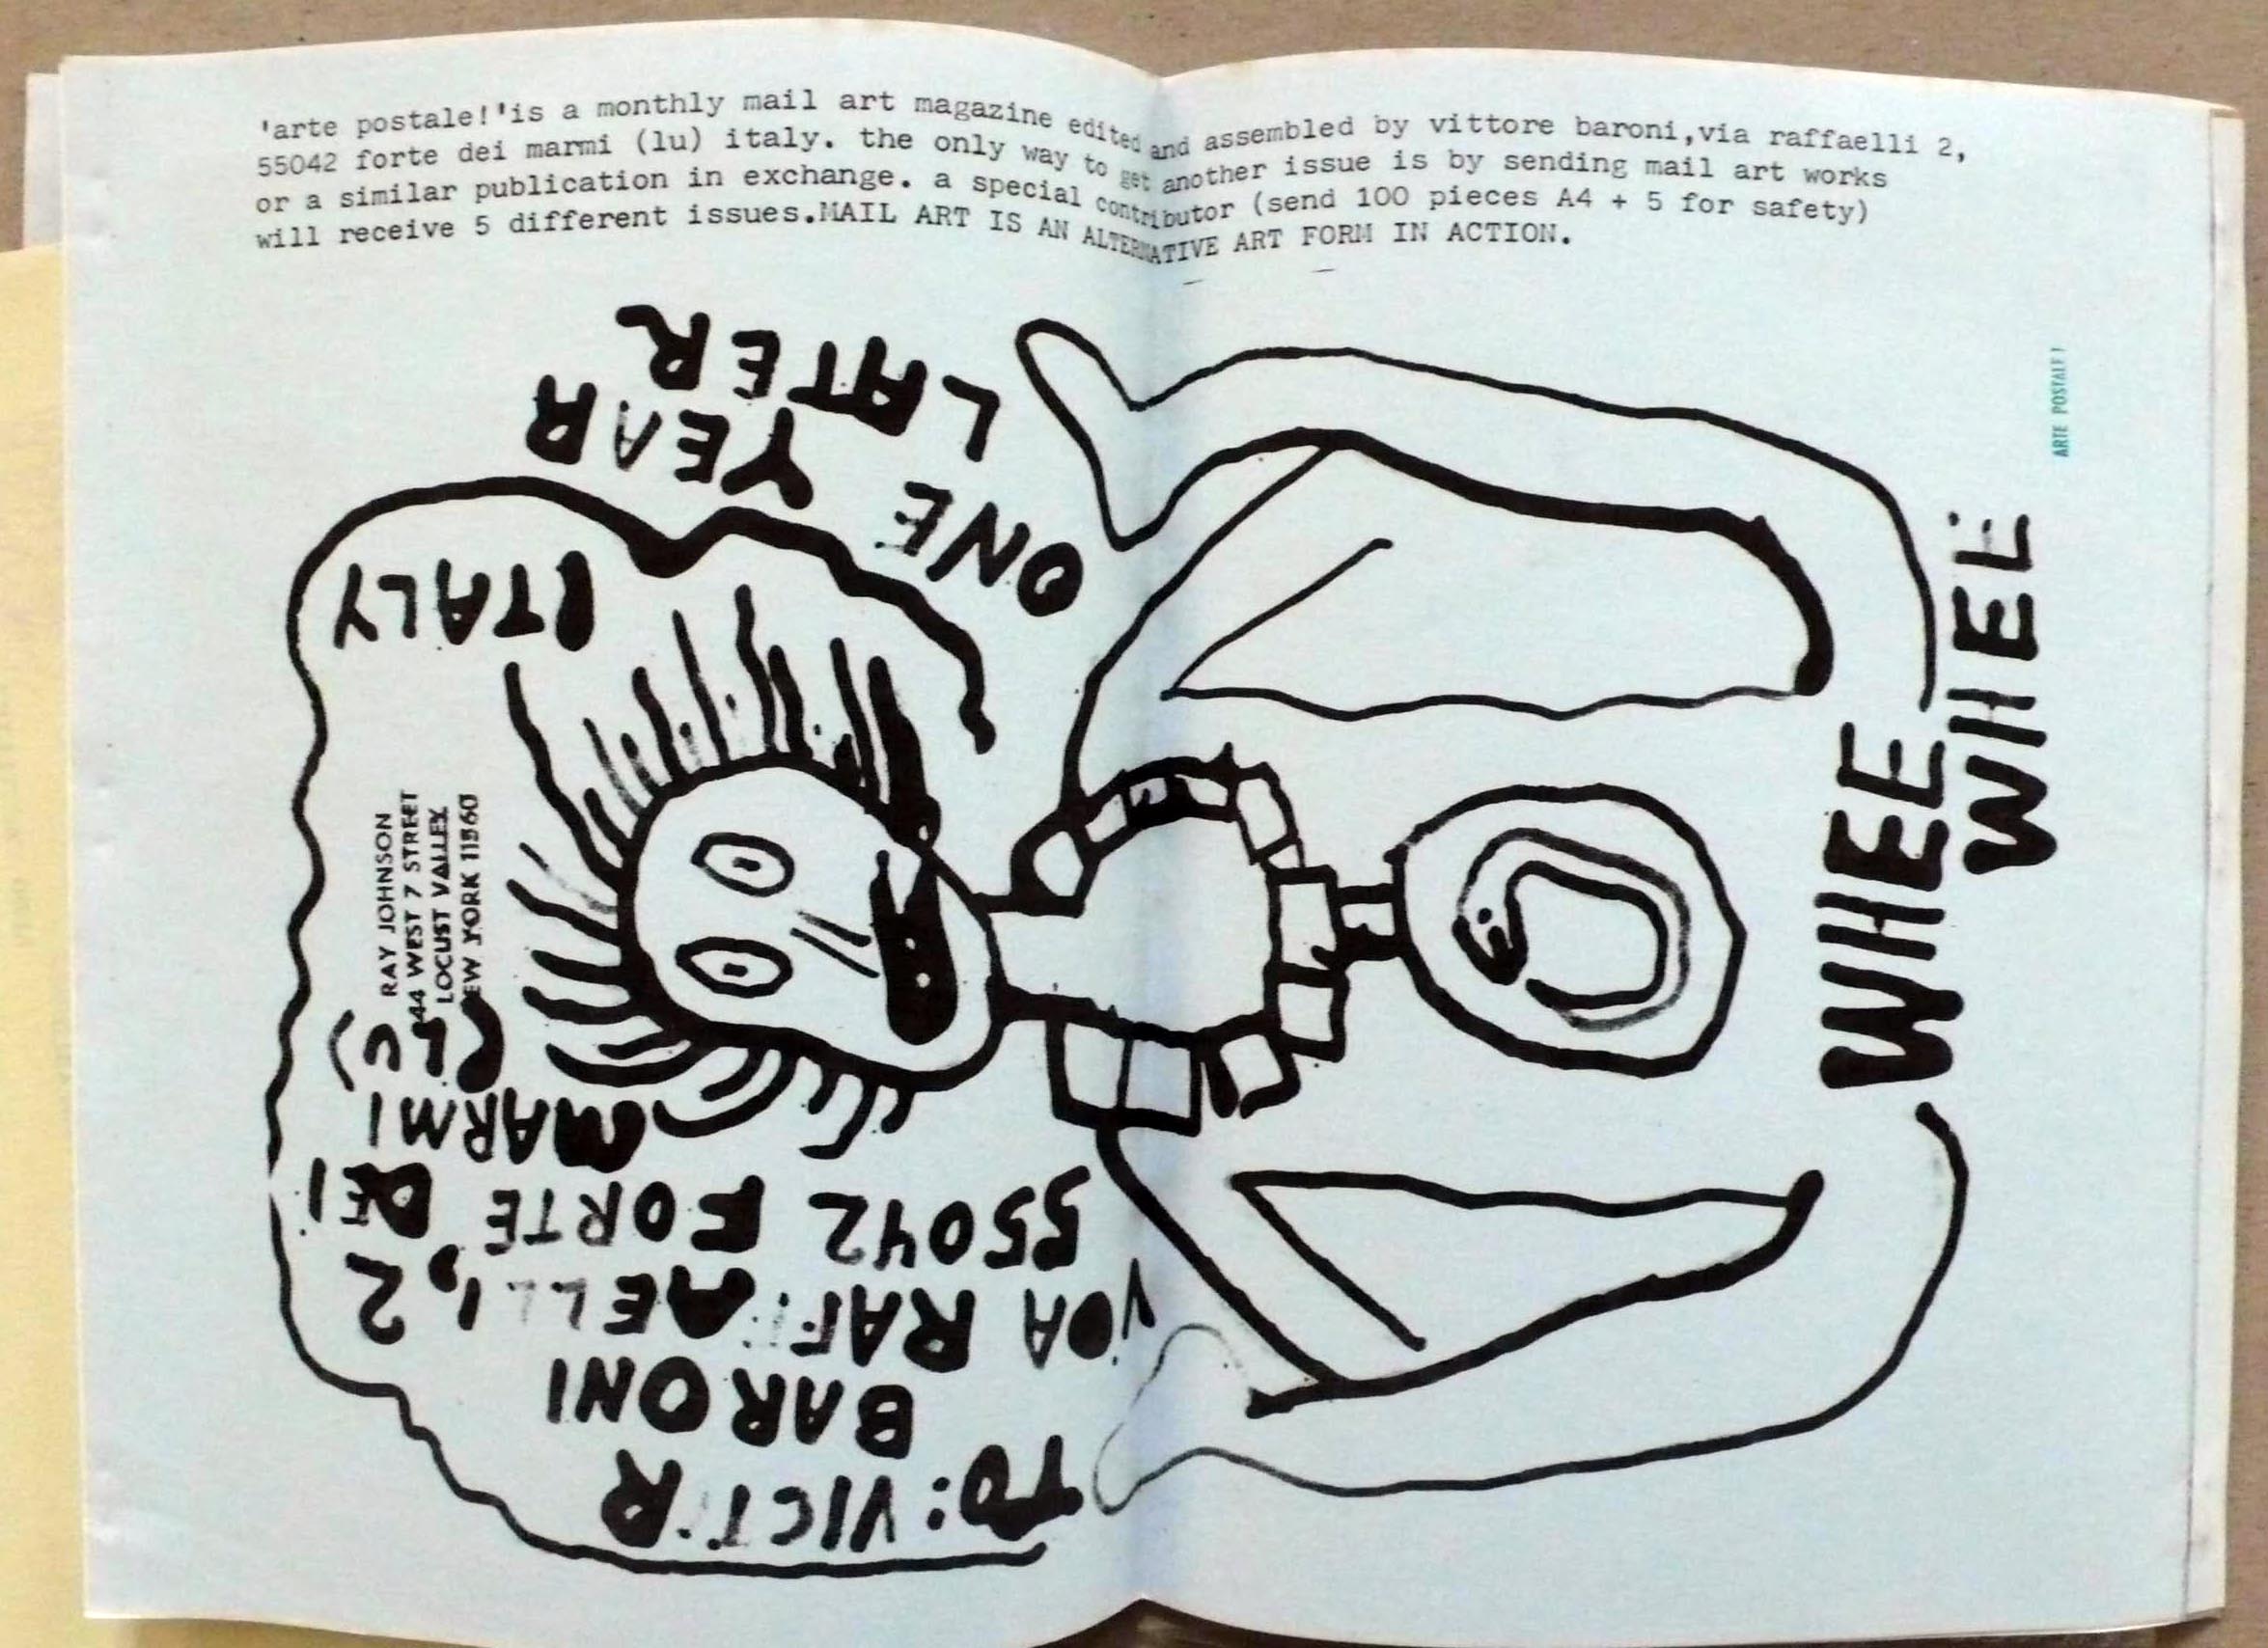 'arte postale!'is a monthly mail art magazine edited and assembled by vittore baroni,via raffaelli 2,
55042 forte dei marmi (lu) italy. the only way to get another issue is by sending mail art works
or a similar publication in exchange. a special contributor (send 100 pieces A4 + 5 for safety)
will receive 5 different issues.MAIL ART IS AN ALTERNATIVE ART FORM IN ACTION.
ONE
YEAR
LATER
TO: VICTOR
BARONI
VIA RAFFAELLI, 2
55042 FORTE DEI
MARMI
(LU)
ITALY
RAY JOHNSON
44 WEST 7 STREET
LOCUST VALLEY
NEW YORK 11560
WHEE
WHEE
ARTE POSTALE!